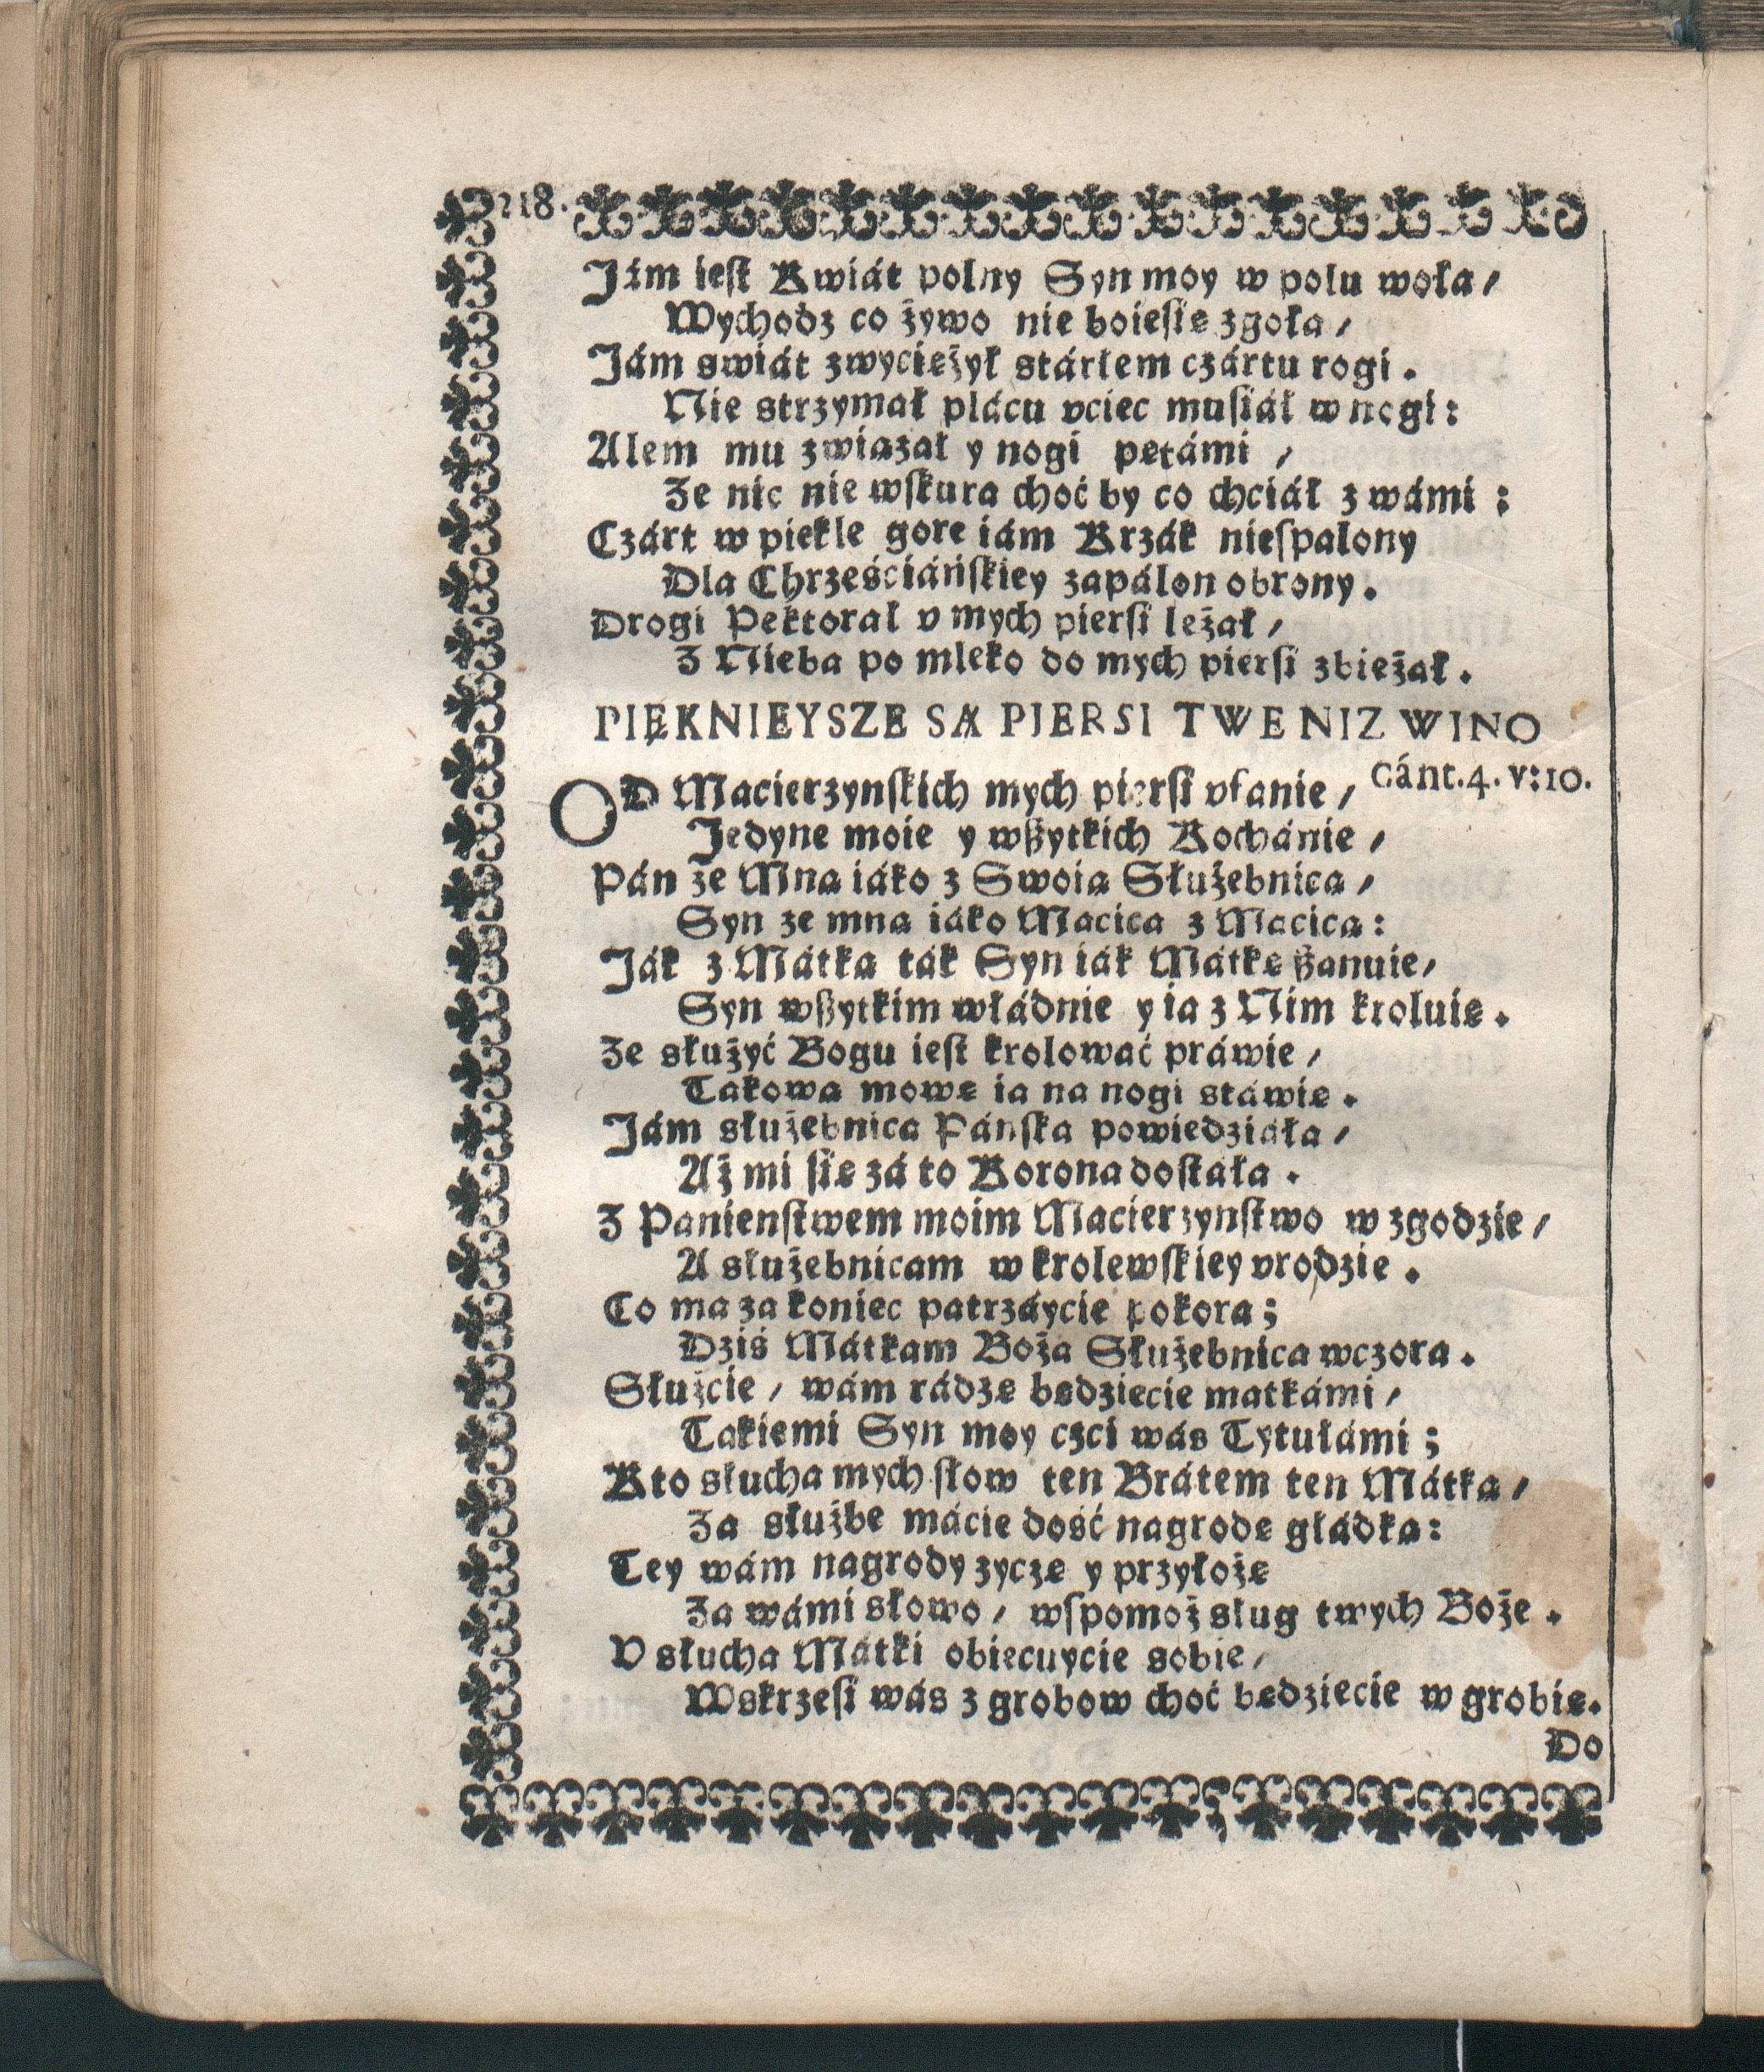 218.
Jám ieſt Kwiát polny Syn moy w polu woła/
Wychodz co żywo nie boieſię zgoła/
Jám swiát zwyciężył stárłem czártu rogi.
Nie strzymał plácu vciec muſiáł w nogi:
Alem mu związał y nogi pętámi /
Ze nic nie wſkura choć by co chciáł z wámi:
Czárt w piekle gore iám Krzák nieſpalony
Dla Chrześciáńſkiey zapálon obrony.
Drogi Pektorał v mych pierſi leżał/
Z Nieba po mleko do mych pierſi zbieżał.
PIĘKNIEYSZE SĄ PJERSI TWE NIZ WINO
Cánt.4. v:10.
OD Macierzynſkich mych pierſi vfanie/
Jedyne moie y wßytkich Kochánie/
Pán ze Mną iáko z Swoią Służebnicą/
Syn ze mną iáko Macica z Macicą:
Ják z Mátką ták Syn iák Mátkę ßanuie/
Syn wßytkim wládnie y ia z Nim kroluię.
Ze służyć Bogu ieſt krolowáć práwie/
Takową mowę ia na nogi stáwię.
Jám służebnica Páńſka powiedziáła/
Aż mi ſię zá to Korona doſtáła.
Z Panienſtwem moim Macierzynſtwo w zgodzie/
A służebnicam w krolewſkiey vrodzie.
Co ma za koniec patrzáycie pokora;
Dziś Mátkam Boża Służebnica wczora.
Służcie/ wám rádzę będziecie matkámi/
Takiemi Syn moy czci wás Tytułámi;
Kto słucha mych ſłow ten Brátem ten Mátką/
Za służbę mácie dość nagrodę głádką:
Tey wám nagrody zyczę y przyłożę
Za wámi słowo/ wſpomoż sług twych Boże.
V słucha Mátki obiecuycie sobie/
Wskrzeſi wás z grobow choć będziecie w grobie.
Do